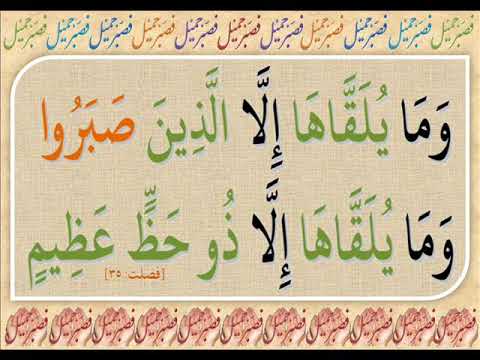 فصبر جمیل فصبر جمیل فصبر جمیل فصبر جمیل فصبر جمیل فصبر جمیل فصبر جمیل فصبر جمیل فصبر جمیل فصبر جمیل فصبر جمیل
وَمَا يُلَقَّاهَا إِلَّا الَّذِينَ صَبَرُوا
وَمَا يُلَقَّاهَا إِلَّا ذُو حَظٍّ عَظِيمٍ
[فصلت: ٣٥]
فصبر جمیل فصبر جمیل فصبر جمیل فصبر جمیل فصبر جمیل فصبر جمیل فصبر جمیل فصبر جمیل فصبر جمیل